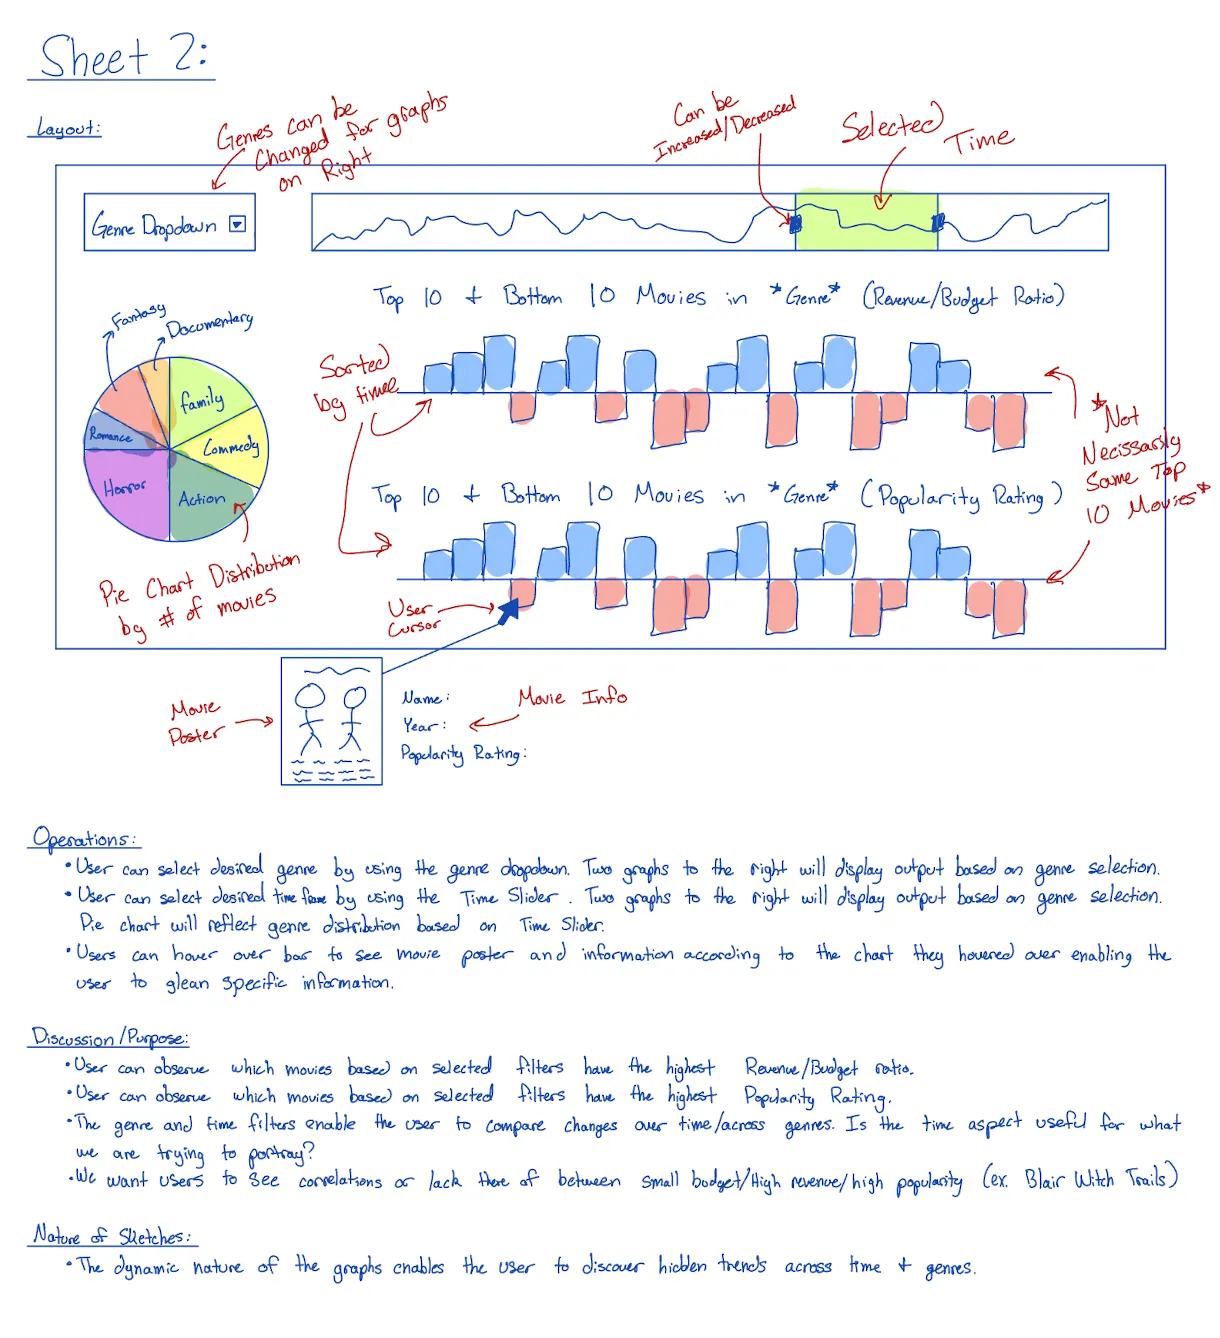 Sheet 2:
Layout:
Genres can be
Changed for graphs
on Right
Can be
Increased/Decreased
Selected
Time
Genre Dropdown
Top 10 + Bottom 10 Movies in *Genre* (Revenue/Budget Ratio)
Fantasy
Documentary
family
Commedy
Action
Horror
Romance
Sorted
by time
*Not
Necissarsly
Same Top
10 Movies*
Top 10 + Bottom 10 Movies in *Genre* (Popularity Rating)
Pie Chart Distribution
by # of movies
User
Cursor
Movie
Poster
Name:
Year:
Popularity Rating:
Movie Info
Operations:
•User can select desired genre by using the genre dropdown. Two graphs to the right will display output based on genre selection.
•User can select desired time frame by using the Time Slider. Two graphs to the right will display output based on genre selection.
Pie chart will reflect genre distribution based on Time Slider.
•Users can hover over bar to see movie poster and information according to the chart they hovered over enabling the
user to glean specific information.
Discussion/Purpose:
•User can observe which movies based on selected filters have the highest Revenue/Budget ratio.
•User can observe which movies based on selected filters have the highest Popularity Rating.
•The genre and time filters enable the user to compare changes over time/across genres. Is the time aspect useful for what
we are trying to portray?
•We want users to see correlations or lack there of between small budget/High revenue/high popularity (ex. Blair Witch Trails)
Nature of Sketches:
•The dynamic nature of the graphs enables the user to discover hidden trends across time + genres.